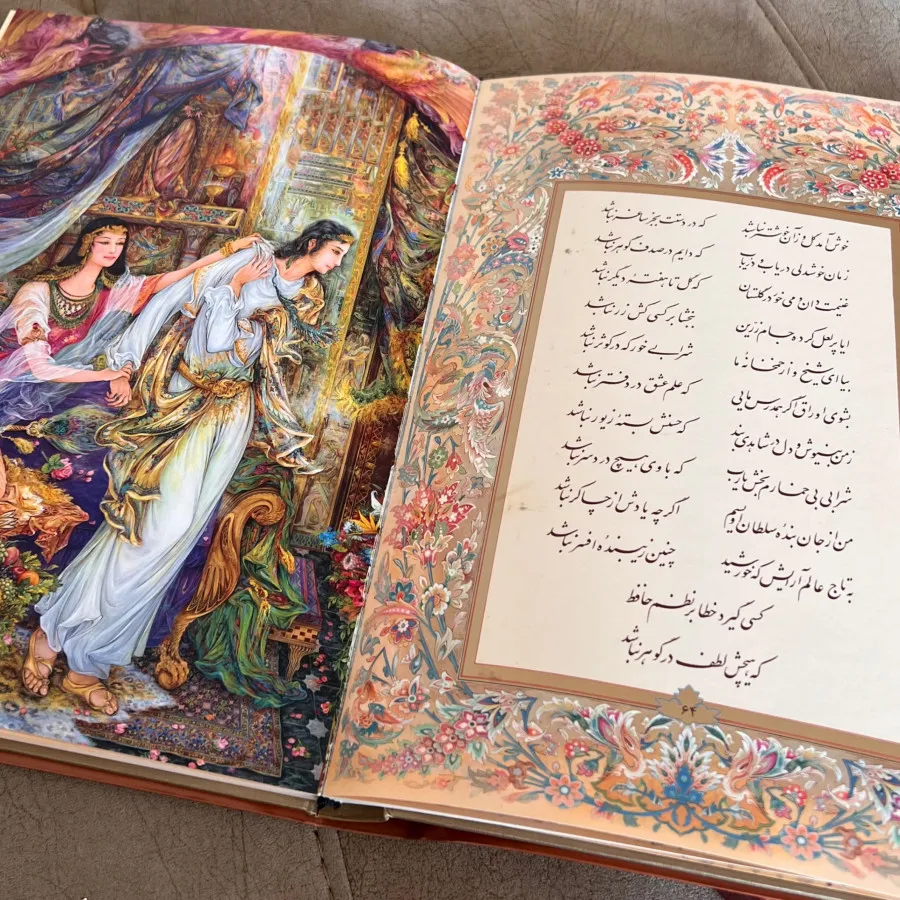 خوش آمد گل وزان خوشتر نباشد که در دستت بجز ساغر نباشد
زمان خوشدلی دریاب و دریاب که دایم در صدف گوهر نباشد
غنیمت دان و می خور در گلستان که گل تا هفتهٔ دیگر نباشد
ایا پر لعل کرده جام زرین ببخشا بر کسی کش زر نباشد
بیا ای شیخ و از خمخانهٔ ما شرابی خور که در کوثر نباشد
بشوی اوراق اگر همدرس مایی که علم عشق در دفتر نباشد
ز من بنیوش و دل در شاهدی بند که حسنش بستهٔ زیور نباشد
شرابی بی خمارم بخش یا رب که با وی هیچ درد سر نباشد
من از جان بندهٔ سلطان اویسم اگر چه یادش از چاکر نباشد
به تاج عالم آرایش که خورشید چنین زیبندهٔ افسر نباشد
کسی گیرد خطا بر نظم حافظ
که هیچش لطف در گوهر نباشد
۶۴